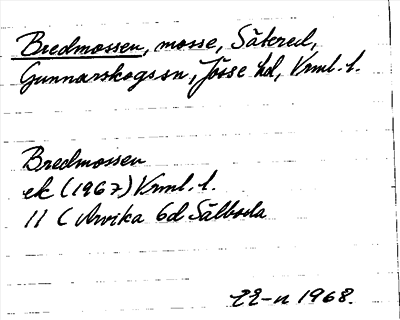 Bredmossen, mosse, Sätered,
Gunnarskogs sn, Jösse hd, Vrml. l.
Bredmossen
ek (1967) Vrml. l.
11 C Arvika 6d Sälboda
1968.